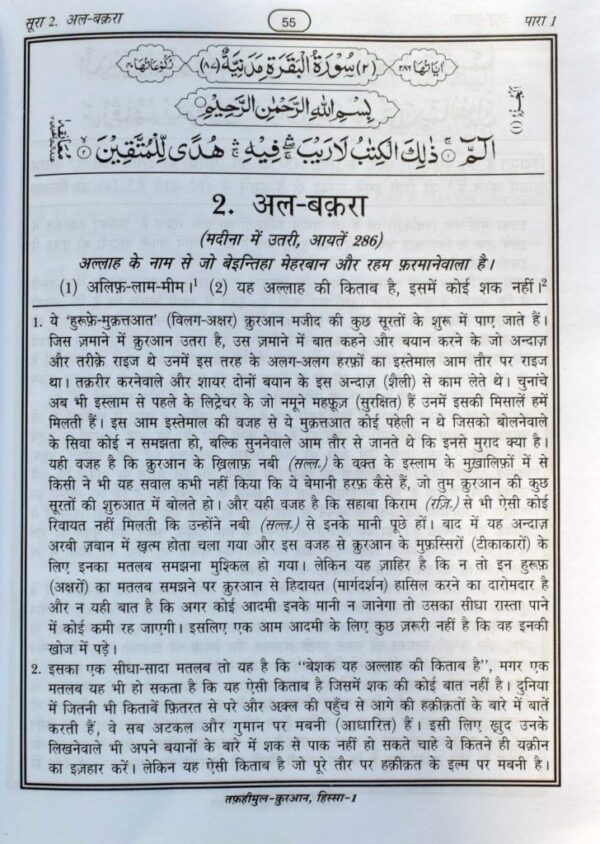 सूरा 2. अल-बक़रा
55
पारा 1
اٰیَاتُهَا ٢٨٦
(٢) سُوْرَةُ الْبَقَرَةِ مَدَنِيَّةٌ (٨٧)
رُكُوْعَاتُهَا ٤٠
بِسْمِ اللّٰهِ الرَّحْمٰنِ الرَّحِيْمِ
الٓمّٓ ۚ ذٰلِكَ الْكِتٰبُ لَا رَيْبَ ۛ فِيْهِ ۛ هُدًى لِّلْمُتَّقِيْنَ
2. अल-बक़रा
(मदीना में उतरी, आयतें 286)
अल्लाह के नाम से जो बेइन्तिहा मेहरबान और रहम फ़रमानेवाला है।
(1) अलिफ़-लाम-मीम।¹ (2) यह अल्लाह की किताब है, इसमें कोई शक नहीं।²
1. ये 'हुरूफ़े-मुक़त्तआत' (विलग-अक्षर) क़ुरआन मजीद की कुछ सूरतों के शुरू में पाए जाते हैं।
जिस ज़माने में क़ुरआन उतरा है, उस ज़माने में बात कहने और बयान करने के जो अन्दाज़
और तरीक़े राइज थे उनमें इस तरह के अलग-अलग हरफ़ों का इस्तेमाल आम तौर पर राइज
था। तक़रीर करनेवाले और शायर दोनों बयान के इस अन्दाज़ (शैली) से काम लेते थे। चुनांचे
अब भी इस्लाम से पहले के लिट्रेचर के जो नमूने महफ़ूज़ (सुरक्षित) हैं उनमें इसकी मिसालें हमें
मिलती हैं। इस आम इस्तेमाल की वजह से ये मुक़त्तआत कोई पहेली न थे जिसको बोलनेवाले
के सिवा कोई न समझता हो, बल्कि सुननेवाले आम तौर से जानते थे कि इनसे मुराद क्या है।
यही वजह है कि क़ुरआन के ख़िलाफ़ नबी (सल्ल.) के वक़्त के इस्लाम के मुख़ालिफ़ों में से
किसी ने भी यह सवाल कभी नहीं किया कि ये बेमानी हरफ़ कैसे हैं, जो तुम क़ुरआन की कुछ
सूरतों की शुरुआत में बोलते हो। और यही वजह है कि सहाबा किराम (रज़ि.) से भी ऐसी कोई
रिवायत नहीं मिलती कि उन्होंने नबी (सल्ल.) से इनके मानी पूछे हों। बाद में यह अन्दाज़
अरबी ज़बान में ख़त्म होता चला गया और इस वजह से क़ुरआन के मुफ़स्सिरों (टीकाकारों) के
लिए इनका मतलब समझना मुश्किल हो गया। लेकिन यह ज़ाहिर है कि न तो इन हुरूफ़
(अक्षरों) का मतलब समझने पर क़ुरआन से हिदायत (मार्गदर्शन) हासिल करने का दारोमदार है
और न यही बात है कि अगर कोई आदमी इनके मानी न जानेगा तो उसका सीधा रास्ता पाने
में कोई कमी रह जाएगी। इसलिए एक आम आदमी के लिए कुछ ज़रूरी नहीं है कि वह इनकी
खोज में पड़े।
2. इसका एक सीधा-सादा मतलब तो यह है कि "बेशक यह अल्लाह की किताब है", मगर एक
मतलब यह भी हो सकता है कि यह ऐसी किताब है जिसमें शक की कोई बात नहीं है। दुनिया
में जितनी भी किताबें फ़ितरत से परे और अक़्ल की पहुँच से आगे की हक़ीक़तों के बारे में बातें
करती हैं, वे सब अटकल और गुमान पर मबनी (आधारित) हैं। इसी लिए ख़ुद उनके
लिखनेवाले भी अपने बयानों के बारे में शक से पाक नहीं हो सकते चाहे वे कितने ही यक़ीन
का इज़हार करें। लेकिन यह ऐसी किताब है जो पूरे तौर पर हक़ीक़त के इल्म पर मबनी है।
तफ़हीमुल-क़ुरआन, हिस्सा-1